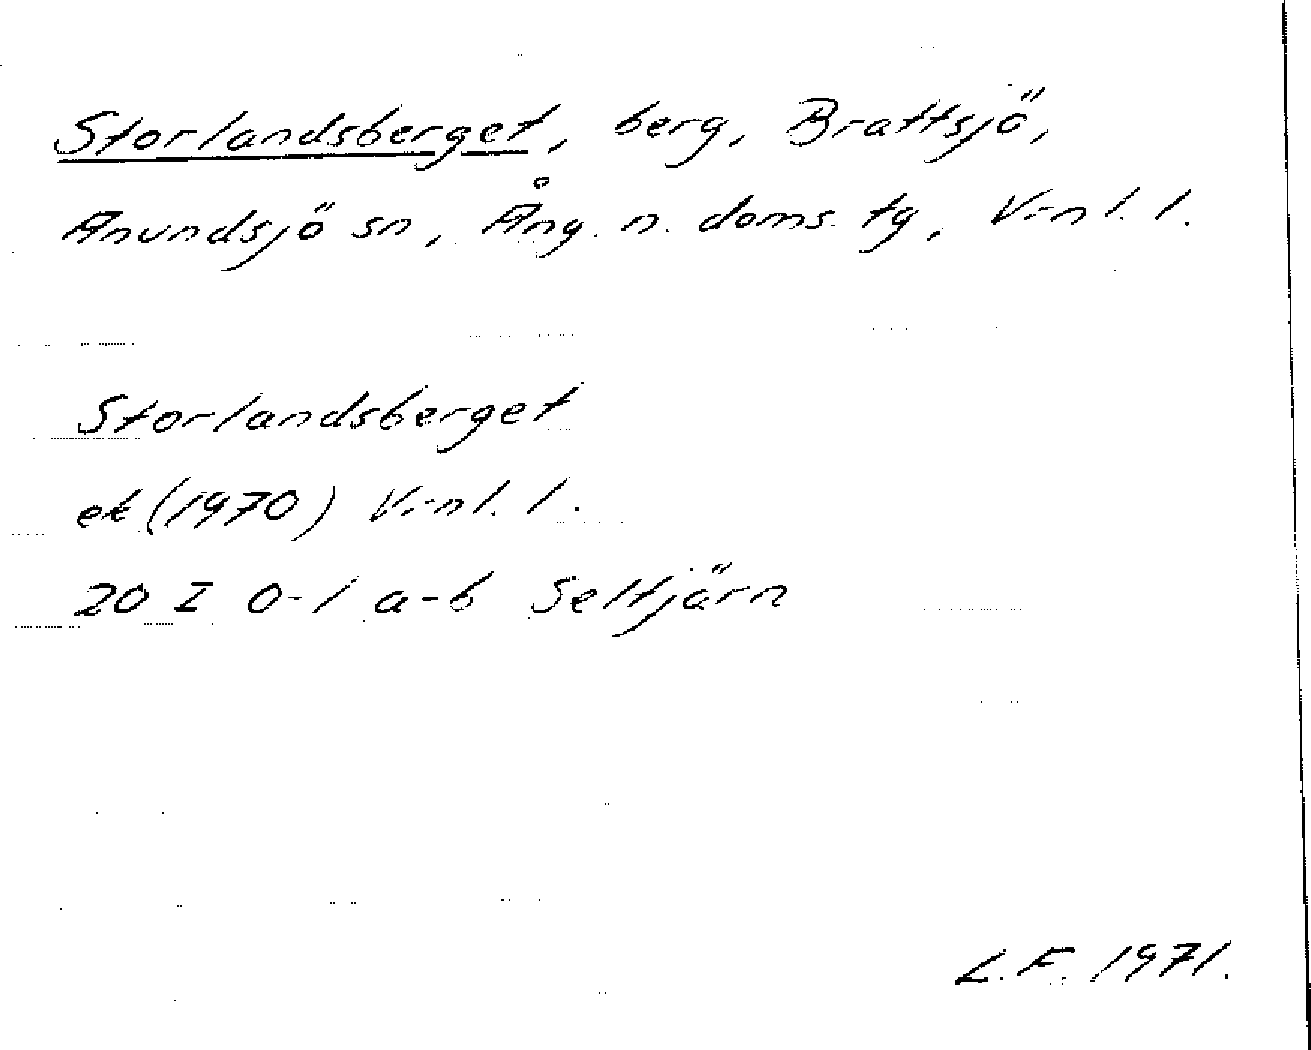 Storlandsberget, berg, Brattsjö,
Anundsjö sn, Ång. n. doms. tg, V-nl. l.
Storlandsberget
ek (1970) V-nl. l.
20 I 0-1 a-b Seltjärn
L.F. 1971.